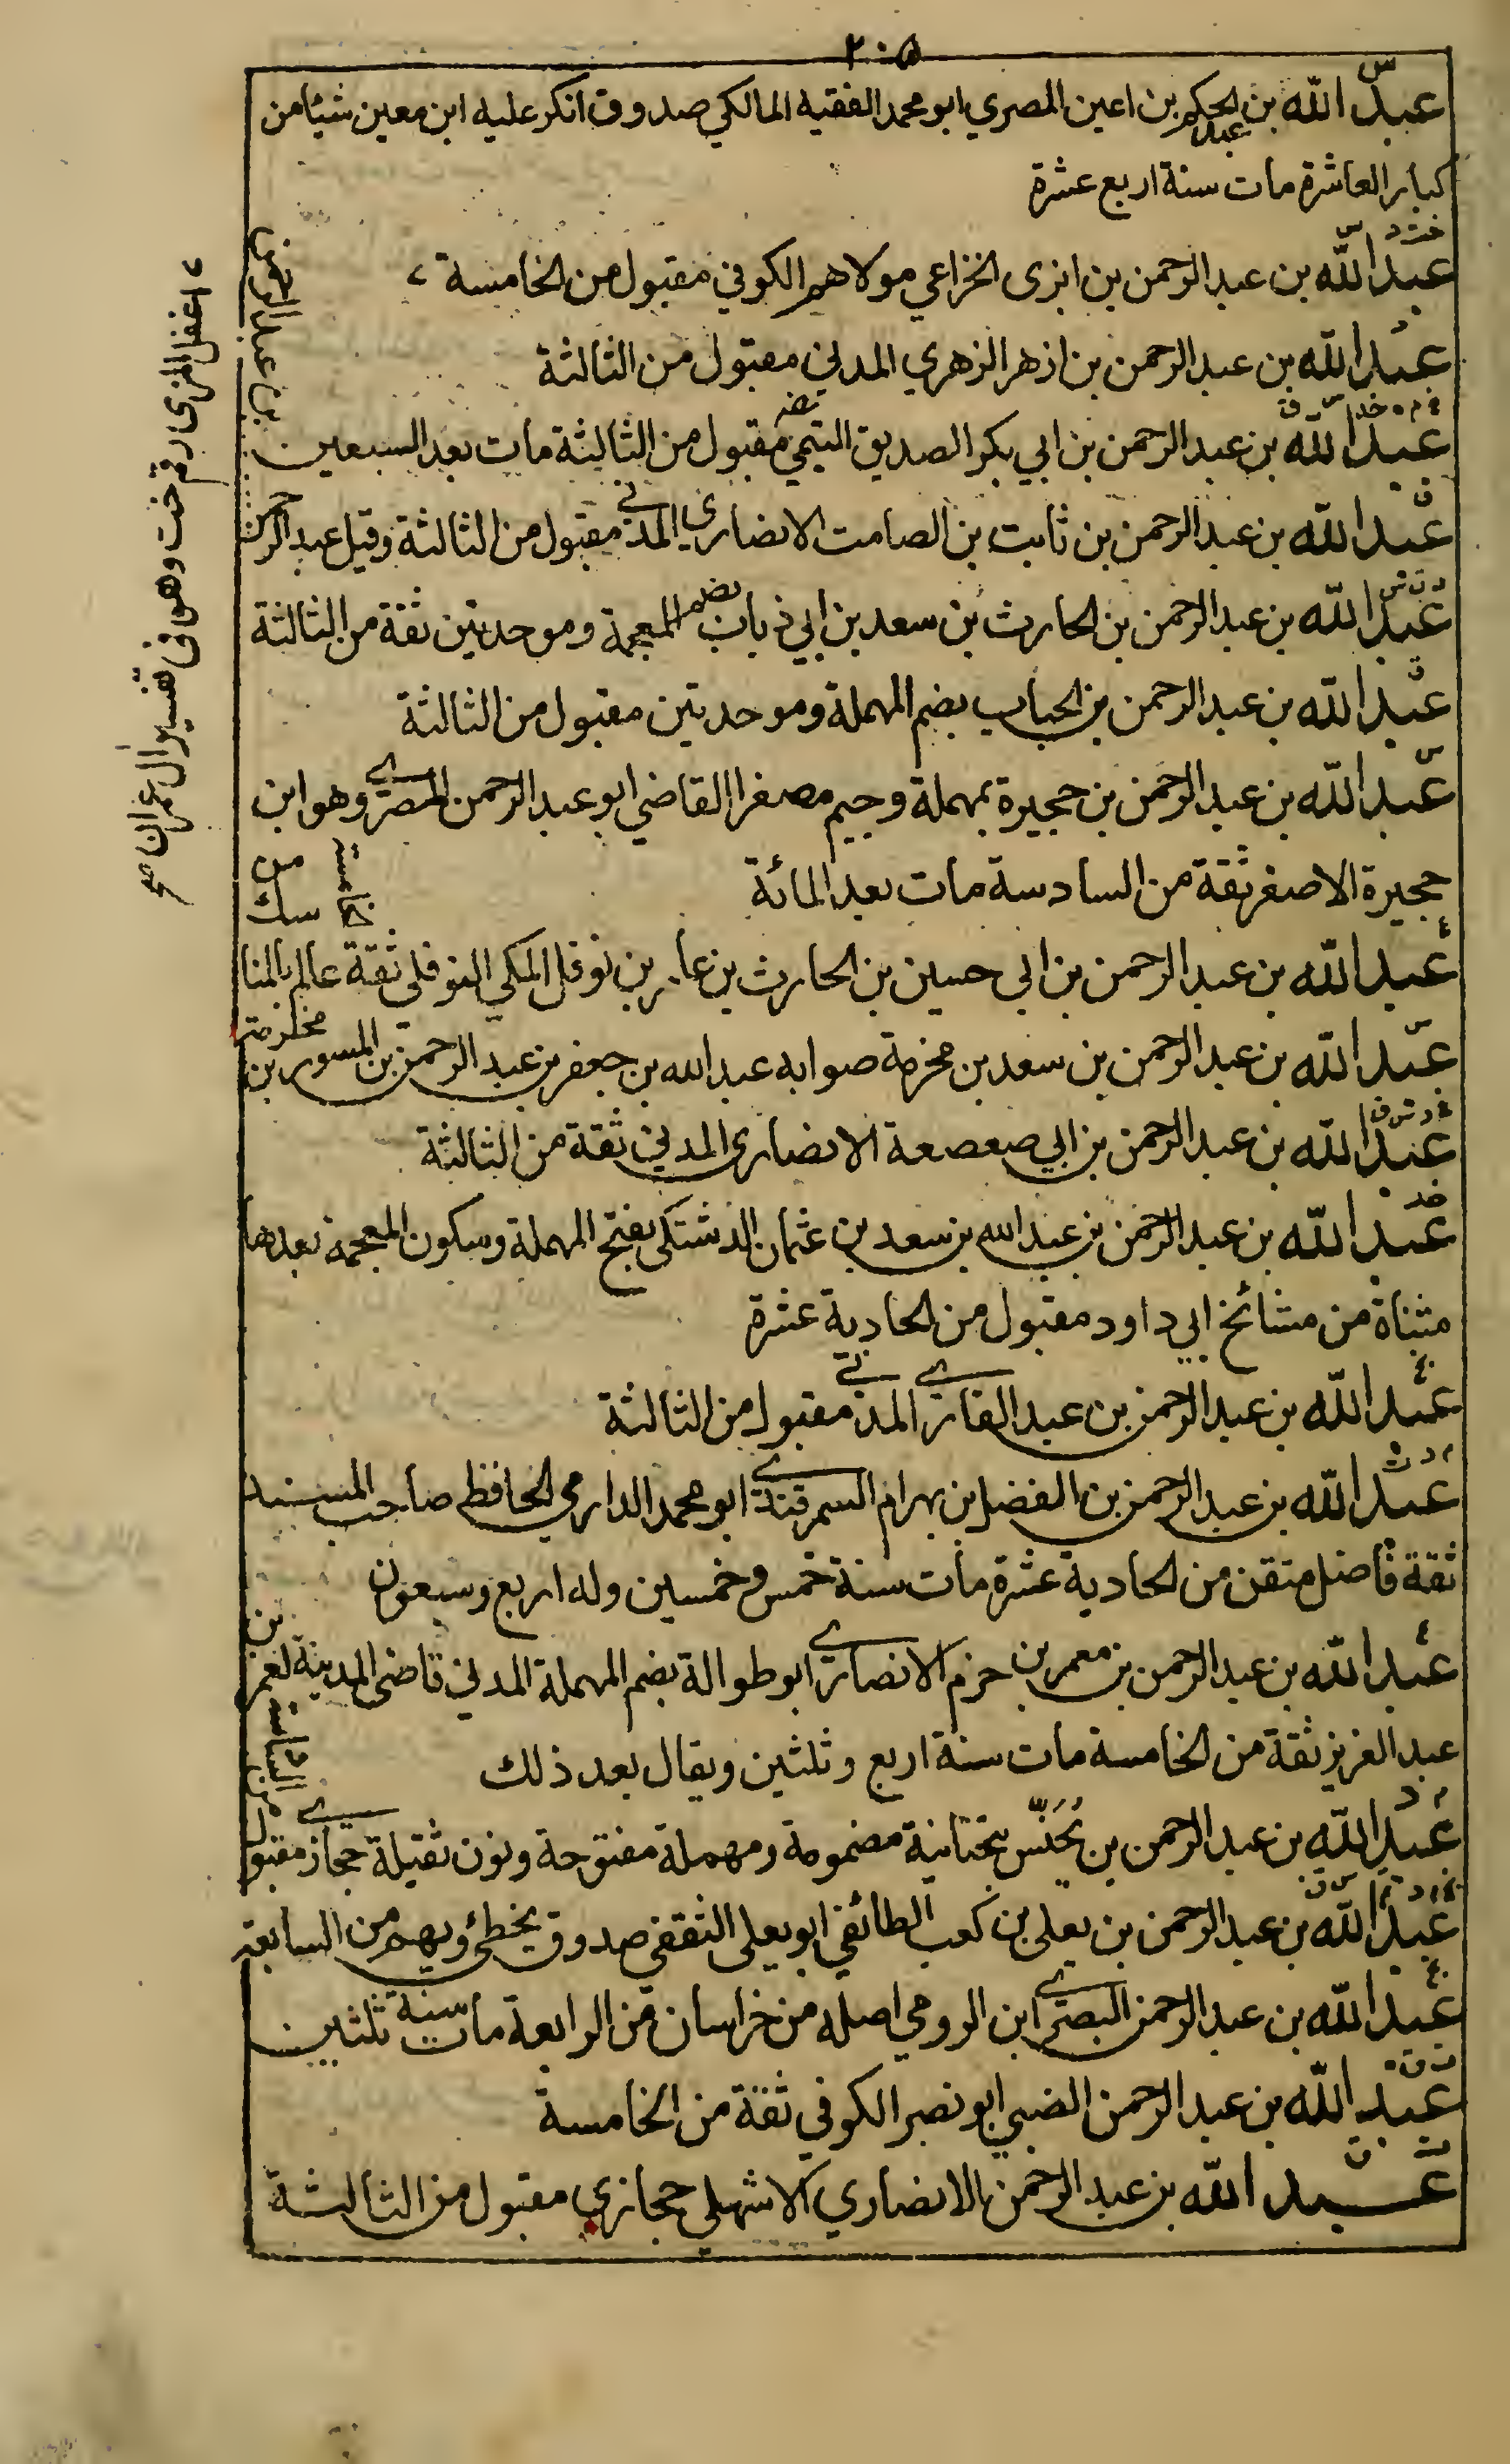 ٢٠٥
س
عبد الله بن عبد الحكم بن اعين المصري ابو محمد الفقيه المالكي صدوق انكر عليه ابن معين شيئا من
كبار العاشرة مات سنة اربع عشرة
خت د س
عبد الله بن عبد الرحمن بن ابزى الخزاعي مولاهم الكوفي مقبول من الخامسة
عبد الله بن عبد الرحمن بن ازهر الزهري المدني مقبول من الثالثة
عبد الله بن عبد الرحمن بن ابي بكر الصديق التيمي مقبول من الثالثة مات بعد السبعين
ق
عبد الله بن عبد الرحمن بن ثابت بن الصامت الانصاري المدني مقبول من الثالثة وقيل عبد الرحمن
بن عبد الرحمن
عبد الله بن عبد الرحمن بن الحارث بن سعد بن ابي ذباب بضم المعجمة وموحدتين ثقة من الثالثة
ق
عبد الله بن عبد الرحمن بن الحباب بضم المهملة وموحدتين مقبول من الثالثة
س
عبد الله بن عبد الرحمن بن حجيرة بمهملة وجيم مصغرا القاضي ابو عبد الرحمن المصري وهو ابن
حجيرة الاصغر ثقة من السادسة مات بعد المائة
ع
عبد الله بن عبد الرحمن بن ابي حسين بن الحارث بن عامر بن نوفل المكي النوفلي ثقة عالم بالمنا
سك من الخامسة
س
عبد الله بن عبد الرحمن بن سعد بن مخرمة صوابه عبد الله بن جعفر بن عبد الرحمن بن المسور بن مخرمة
خ د س ق
عبد الله بن عبد الرحمن بن ابي صعصعة الانصاري المدني ثقة من الثالثة
عبد الله بن عبد الرحمن بن عبد الله بن سعد بن عثمان الدشتكي بفتح المهملة وسكون المعجمة بعدها
مثناة من مشائخ ابي داود مقبول من الحادية عشرة
عبد الله بن عبد الرحمن بن عبد القاري المدني مقبول من الثالثة
م د ت
عبد الله بن عبد الرحمن بن الفضل بن بهرام السمرقندي ابو محمد الدارمي الحافظ صاحب المسند
ثقة فاضل متقن من الحادية عشرة مات سنة خمس وخمسين وله اربع وسبعون
ع
عبد الله بن عبد الرحمن بن معمر بن حزم الانصاري ابو طوالة بضم المهملة المدني قاضي المدينة لعمر بن
عبد العزيز ثقة من الخامسة مات سنة اربع وثلثين ويقال بعد ذلك
م د
عبد الله بن عبد الرحمن بن يُحَنّس بتحتانية مضمومة ومهملة مفتوحة ونون ثقيلة حجازي مقبول
من الثامنة
عبد الله بن عبد الرحمن بن يعلى بن كعب الطائفي ابو يعلى الثقفي صدوق يخطئ ويهم من السابعة
بخ
عبد الله بن عبد الرحمن البصري ابن الرومي اصله من خراسان من الرابعة مات سنة ثلثين
ت ق
عبد الله بن عبد الرحمن الضبي ابو نصر الكوفي ثقة من الخامسة
ت ق
عبد الله بن عبد الرحمن الانصاري الاشهلي حجازي مقبول من الثالثة
اغفل المزي رقم خت وهو في تفسير آل عمران صح